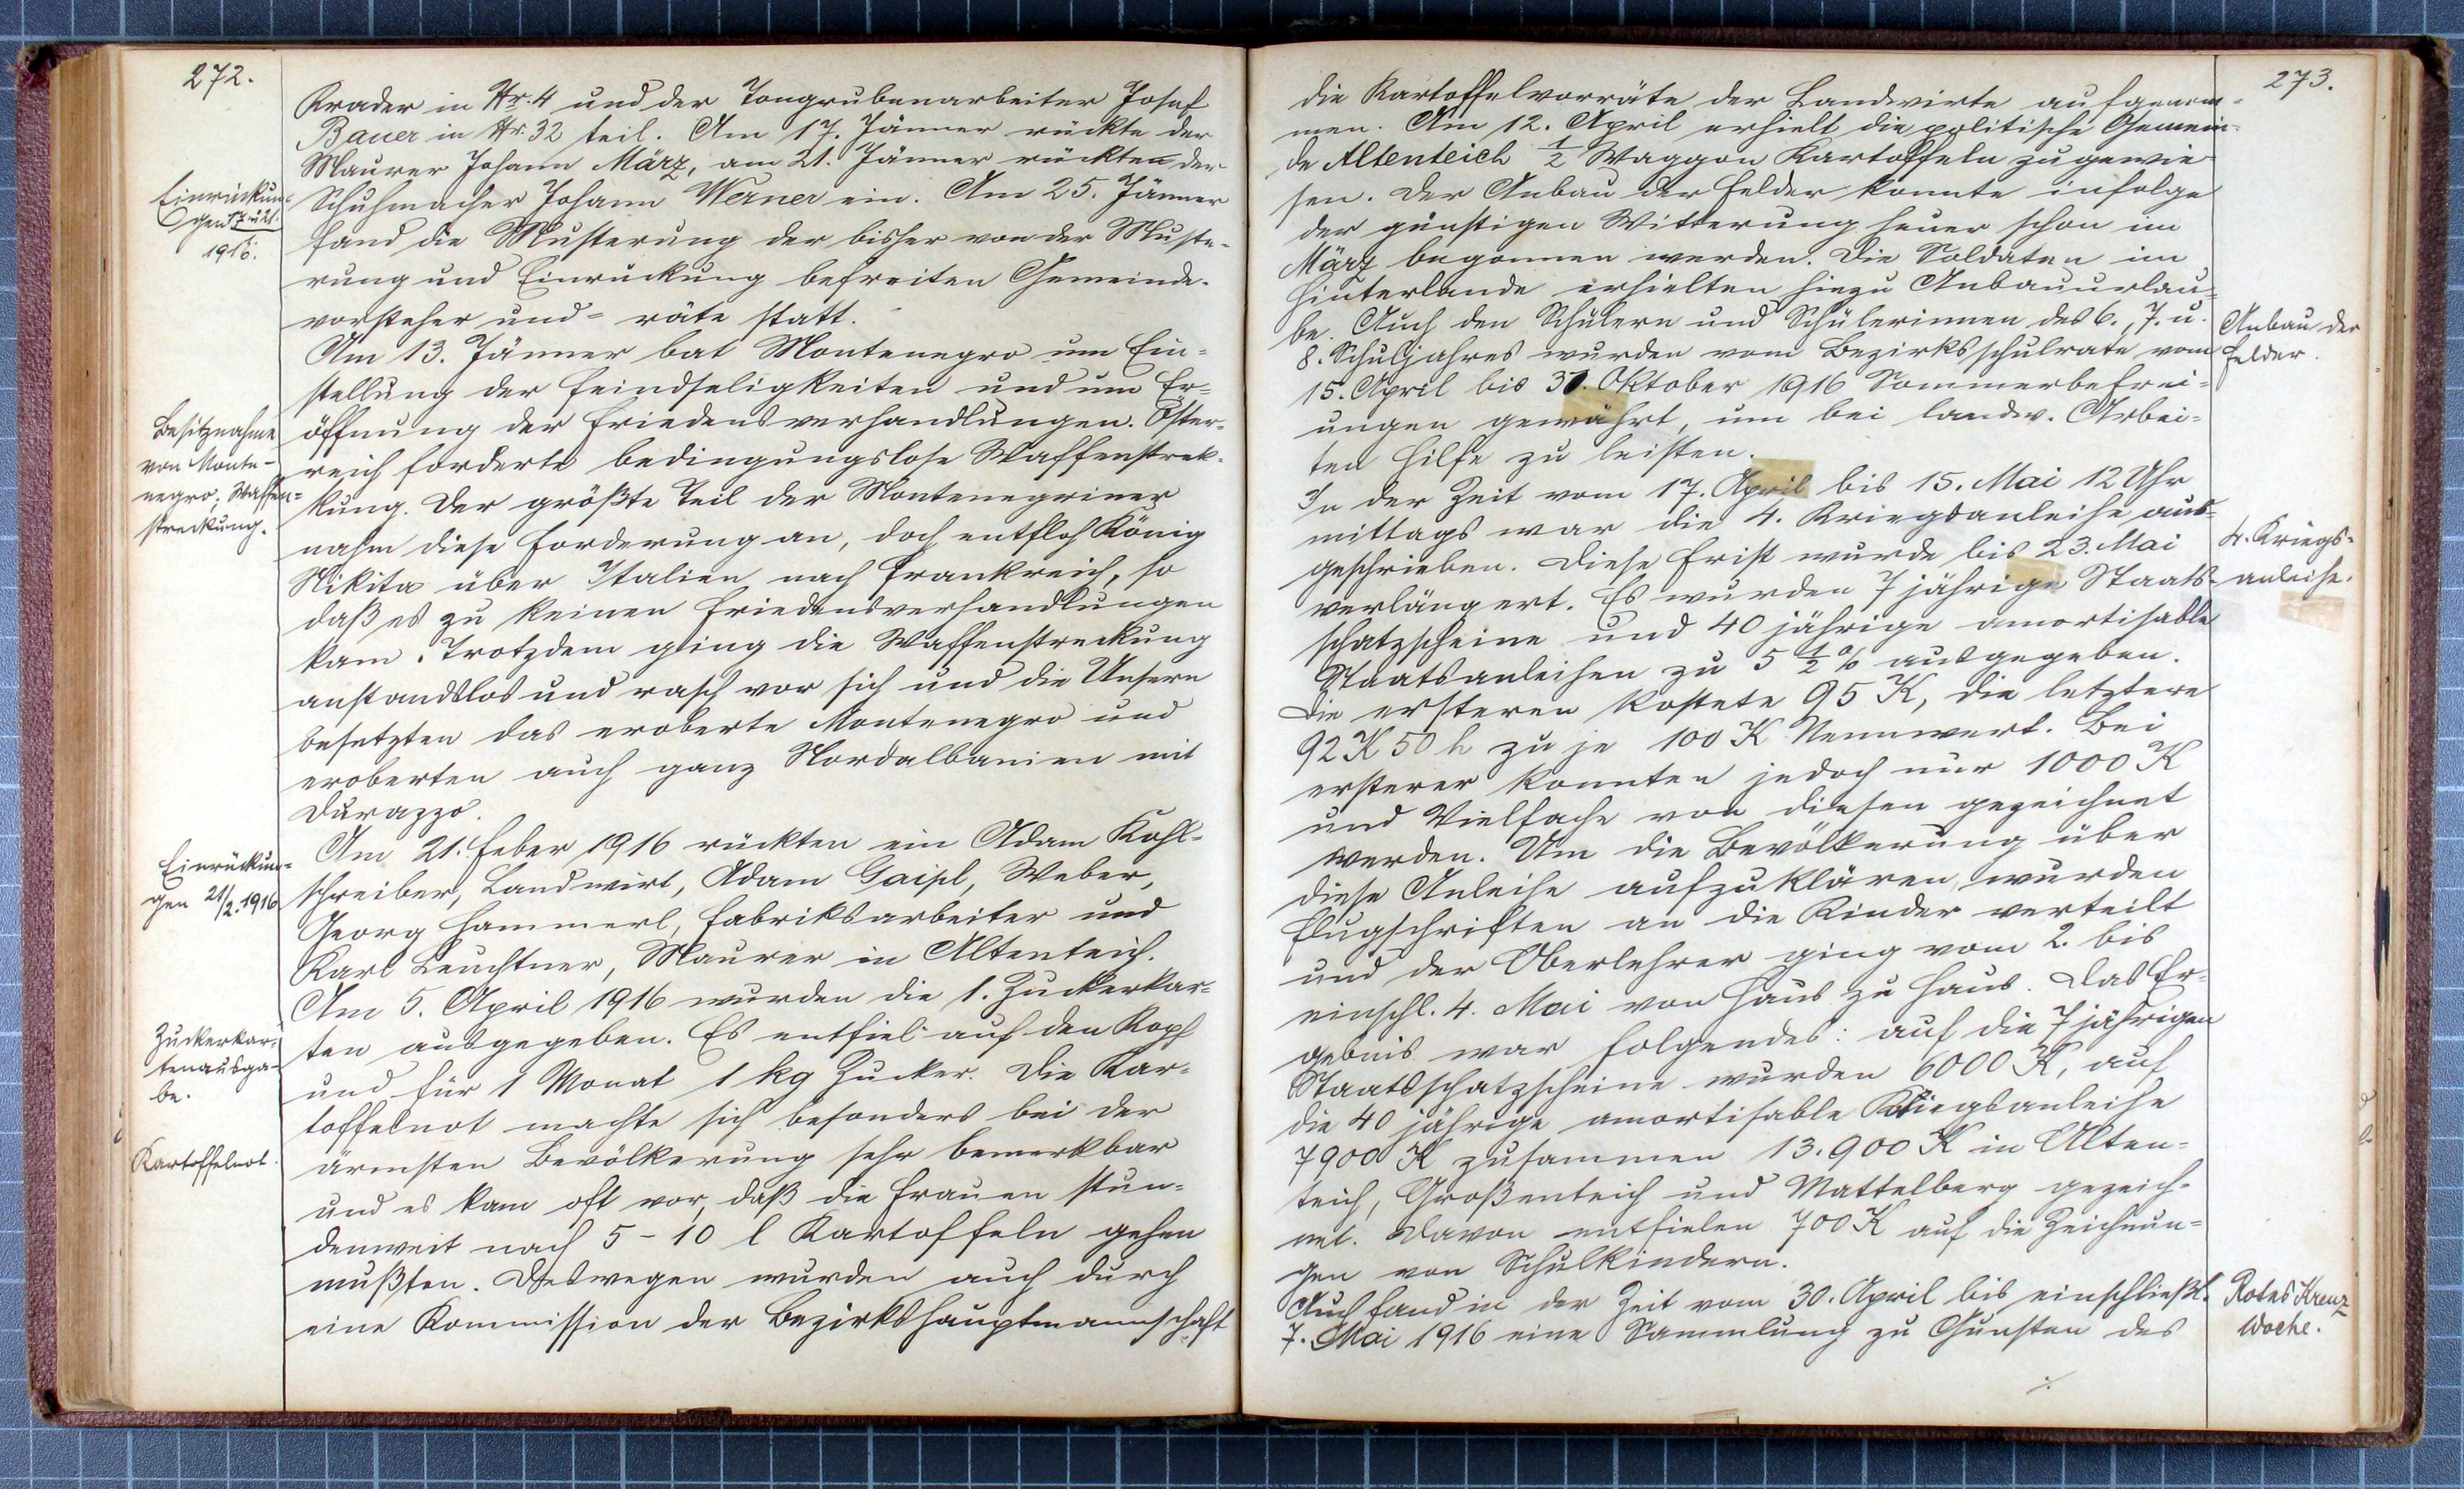 272.
Krader in Nr. 4 und der Tongrubenarbeiter Josef
Bauer in Nr. 32 teil. Am 17. Jänner rückte der
Maurer Johann März, am 21. Jänner rückten der
Schuhmacher Johann Werner ein. Am 25. Jänner
fand die Musterung der bisher von der Muste-
rung und Einrückung befreiten Gemeinde-
vorsteher und- räte statt.
Einrückun-
gen 17. u 21.
1916.
Am 13. Jänner bat Montenegro um Ein-
stellung der Feindseligkeiten und um Er-
öffnung der Friedensverhandlungen. Öster-
reich forderte bedingungslose Waffenstrek-
kung. Der größte Teil der Montenegriner
nahm diese Forderung an, doch entfloh König
Nikita über Italien nach Frankreich, so
daß es zu keinen Friedensverhandlungen
kam. Trotzdem ging die Waffenstreckung
anstandslos und rasch vor sich und die Unsern
besetzten das eroberte Montenegro und
eroberten auch ganz Nordalbanien mit
Durazzo.
Besitznahme
von Monte-
negro; Waffen-
streckung.
Am 21. Feber 1916 rückten ein Adam Kohl-
schreiber, Landwirt, Adam Gaipl, Weber,
Georg Hammerl, Fabriksarbeiter und
Karl Leuchtner, Maurer in Altenteich.
Einrückun-
gen 21/2. 1916
Am 5. April 1916 wurden die 1. Zuckerkar-
ten ausgegeben. Es entfiel auf den Kopf
und für 1 Monat 1 kg Zucker. Die Kar-
toffelnot machte sich besonders bei der
ärmsten Bevölkerung sehr bemerkbar
und es kam oft vor, daß die Frauen stun-
denweit nach 5-10 l Kartoffeln gehen
mußten. Deswegen wurden auch durch
eine Kommission der Bezirkshauptmannschaft
Zuckerkar-
tenausga-
be.
Kartoffelnot.
273.
die Kartoffelvorräte der Landwirte aufgenom-
men. Am 12. April erhielt die politische Gemein-
de Altenteich 1/2 Waggon Kartoffeln zugewie-
sen. Der Anbau der Felder konnte infolge
der günstigen Witterung heuer schon im
März begonnen werden. Die Soldaten im
Hinterlande erhielten hiezu Anbauurlau-
be. Auch den Schülern und Schülerinnen des 6., 7. u.
8. Schuljahres wurden vom Bezirksschulrate vom
15. April bis 31. Oktober 1916 Sommerbefrei-
ungen gewährt, um bei landw. Arbei-
ten Hilfe zu leisten.
Anbau der
Felder.
In der Zeit vom 17. April bis 15. Mai 12 Uhr
mittags war die 4. Kriegsanleihe aus-
geschrieben. Diese Frist wurde bis 23. Mai
verlängert. Es wurden 7 jährige Staats-
schatzscheine und 40 jährige amortisable
Staatsanleihen zu 5 1/2 % ausgegeben.
Die ersteren kostete 95 K, die letztere
92 K 50 h zu je 100 K Nennwert. Bei
ersterer konnten jedoch nur 1000 K
und Vielfache von diesen gezeichnet
werden. Um die Bevölkerung über
diese Anleihe aufzuklären, wurden
Flugschriften an die Kinder verteilt
und der Oberlehrer ging vom 2. bis
einschl. 4. Mai von Haus zu Haus. Das Er-
gebnis war folgendes: auf die 7 jährigen
Staatsschatzscheine wurden 6000 K, auf
die 40 jährige amortisable Kriegsanleihe
7900 K zusammen 13.900 K in Alten-
teich, Großenteich und Mattelberg gezeich-
net. Davon entfielen 700 K auf die Zeichnun-
gen von Schulkindern.
4. Kriegs-
anleihe.
Auch fand in der Zeit vom 30. April bis einschließl.
7. Mai 1916 eine Sammlung zu Gunsten des
Rotes Kreuz
Woche.
./.